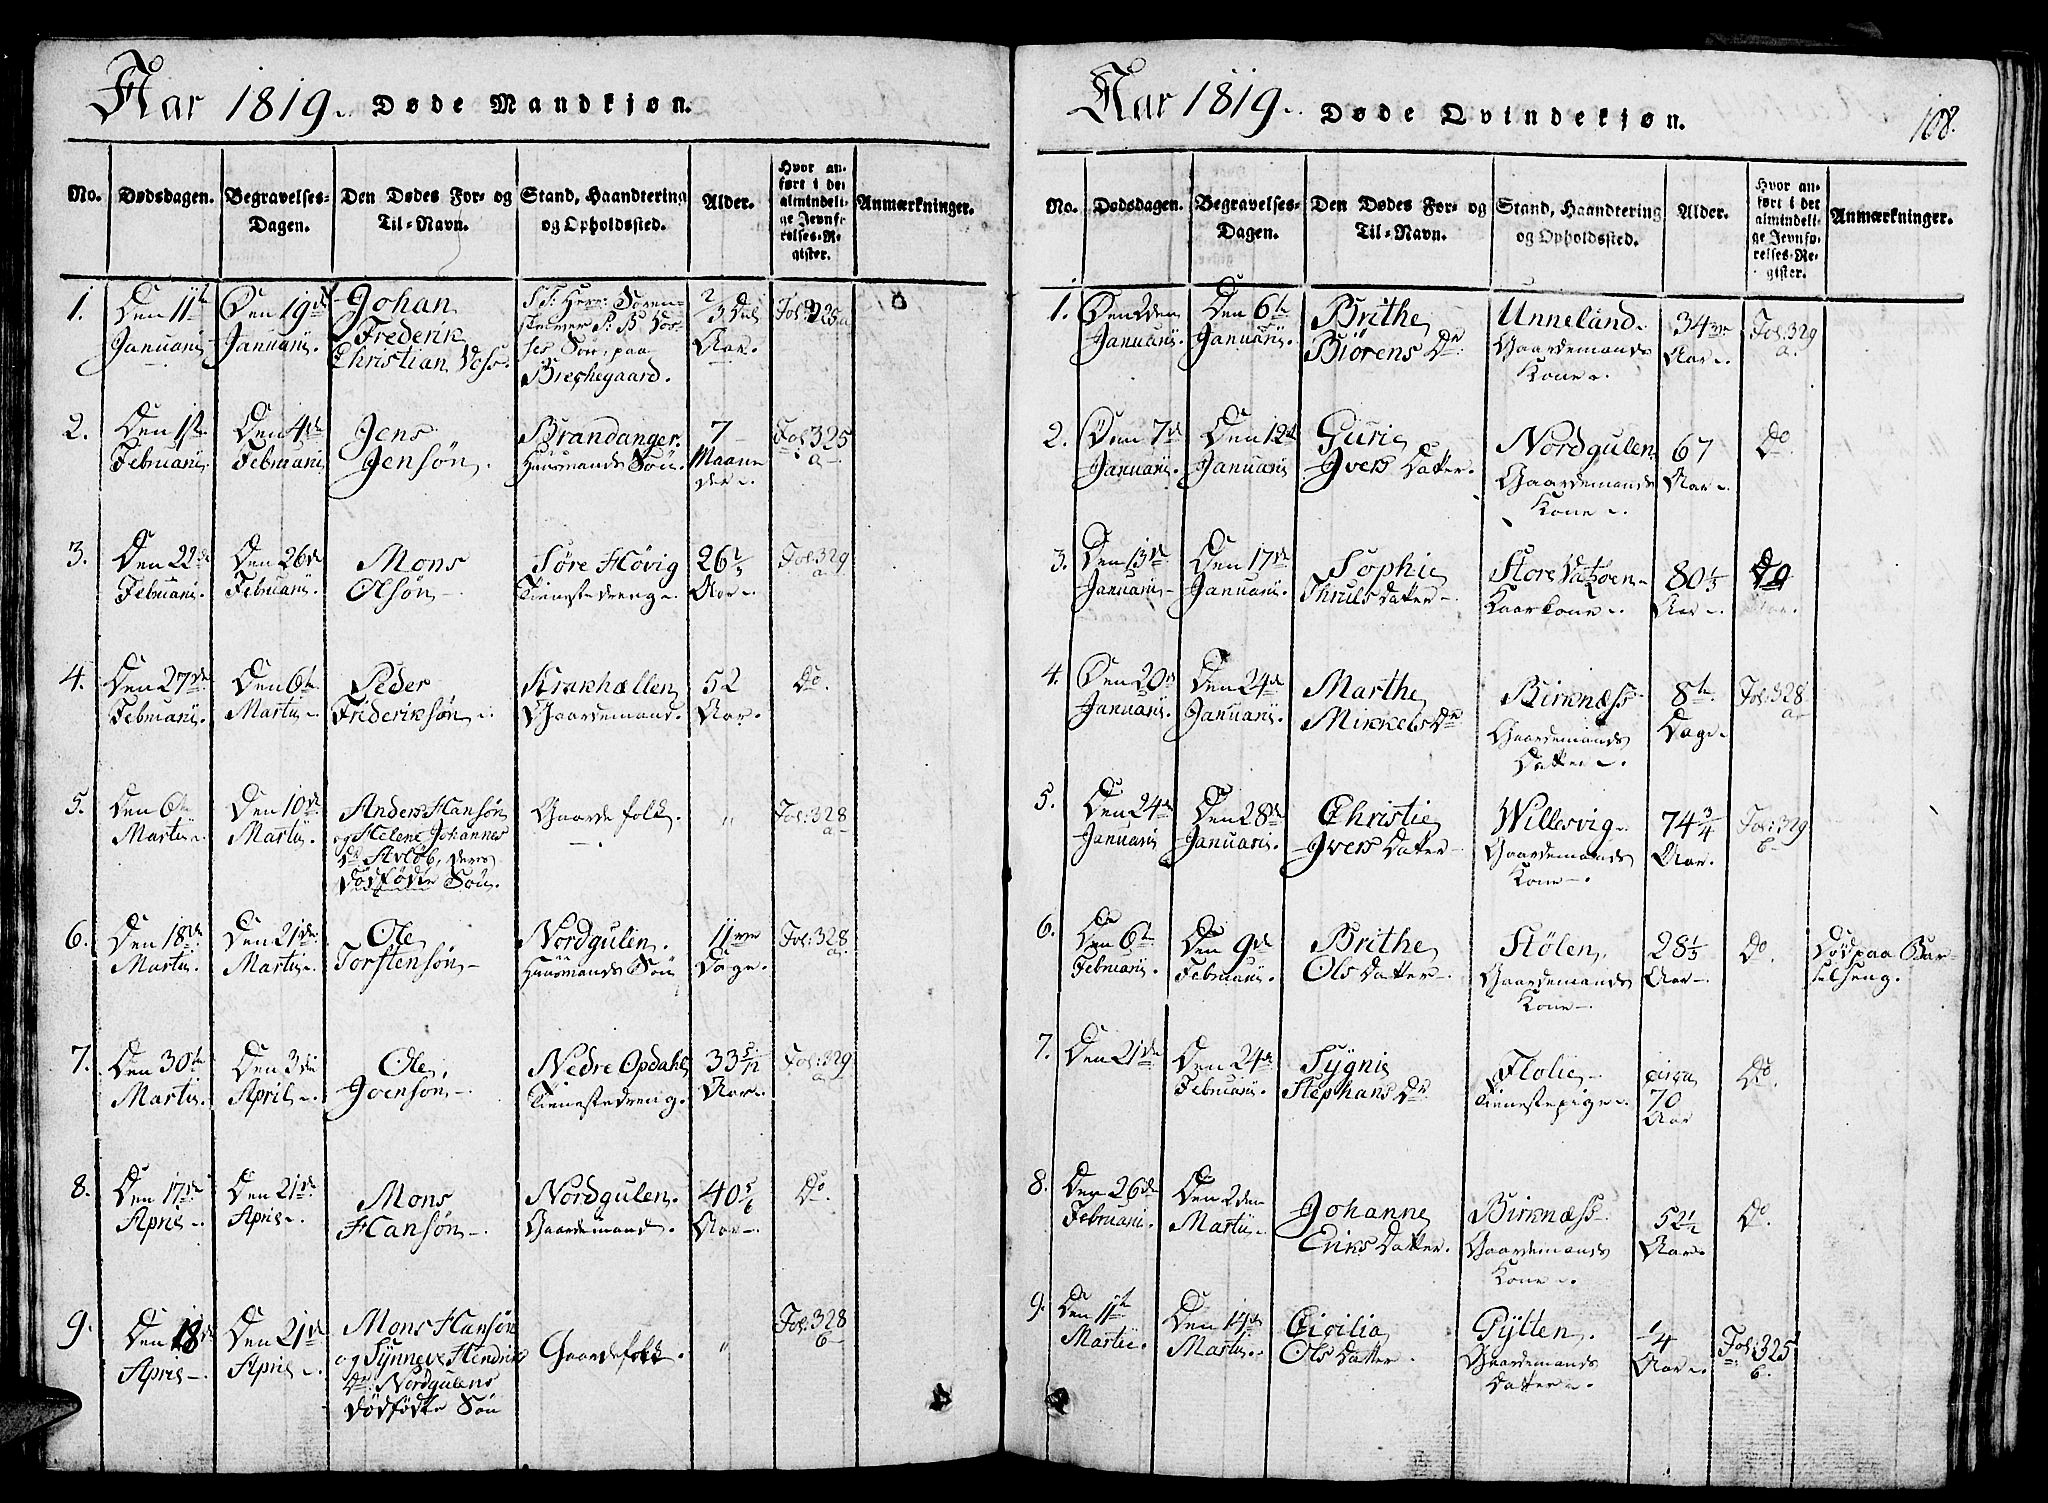 Aar 1819. Døde Mandkjøn.
No. Dødsdagen. Begravelses-Dagen. Den Dødes For- og Til-Navn. Stand, Haandtering og Opholdssted. Alder. Hvor anført i det almindelige Jevnførelses-Register. Anmærkninger.
1. Den 11te Januarii. Den 19de Januarii. Johan Frederik Christian Voss. S. T. Herr Sorenskriver P: B Vosses Søn, paa Brechegaard. 2/3 Deel Aar. Fol: 325 a 0
2. Den 1ste Februarii. Den 4de Februarii Jens Jensøn. Brandanger. Huusmands Søn. 7 Maaneder. Fol 325 a
3. Den 22de Februarii. Den 26de Februarii. Mons Olsøn. Søre Høvig Tienestedreng. 26 1/3 Aar. Fol: 329 a
4. Den 27de Februarii. Den 6te Martii. Peder Frideriksøn. Krakhællen Gaardemand. 52 Aar. Do.
5. Den 6te Martii. Den 10de Martii. Anders Hansøn og Helene Johannes Dr Avløb, deres dødfødte Søn. Gaardefolk. " Fol: 328 a
6. Den 18de Martii. Den 21de Martii. Ole Torstensøn. Nordgulen. Huusmands Søn 11ve Dage. Fol: 328 a.
7. Den 30te Martii. Den 3die April. Ole Joensøn. Nedre Opdahl Tienestedreng. 33 5/12 Aar. Fol: 329 a
8. Den 17de April. Den 21de April. Mons Hansøn. Nordgulen. Gaardemand. 40 5/6 Aar. Do.
9. Den 18de April. Den 21de April. Mons Hansøn og Synneve Hendriks Dr: Nordgulens dødfødte Søn Gaardefolk. " Fol: 328 b
Aar 1819. Døde Qvindekjøn. 108.
No. Dødsdagen. Begravelses-Dagen. Den Dødes For- og Til-Navn. Stand, Haandtering og Opholdssted. Alder. Hvor anført i det almindelige Jevnførelses-Register. Anmærkninger.
1. Den 2den Januarii. Den 6te Januarii. Brithe Biørens Dr. Unneland. Gaardemands Kone. 34 Aar. Fol: 329 a.
2. Den 7de Januarii. Den 12te Januarii Gurie Ivers Datter. Nordgulen Gaardemands Kone. 67 Aar. Do
3. Den 13de Januarii. Den 17de Januarii. Sophie Thruls Datter. Store Kaarkone. 80 1/3 Aar. Do
4. Den 20de Januarii. Den 24de Januarii. Marthe Mikkels Dr Birknæss Gaardemands Datter. 8te Dage. Fol: 328 a
5. Den 24de Januarii Den 28de Januarii. Christie Ivers Datter. Willesvig. Gaardemands Kone. 74 3/4 Aar. Fol: 329 b
6. Den 6te Februarii. Den 9de Februarii. Brithe Ols Datter. Hølen. Gaardemands Kone. 28 1/3 Aar. Do. Død paa Barselseng.
7. Den 21de Den 24de Februarii. Sygni Stephans Dr. Flolie. Tienestepige. circa 70 Aar Do.
8. Den 26de Februarii. Den 2den Martii. Johanne Eriks Datter. Birknæss. Gaardemands Kone. 52 1/2 Aar. Do.
9. Den 11te Martii. Den 14de Martii. Cicilia Ols Datter. Pytten. Gaardemands Datter. 1/4 Aar. Fol: 325 b.